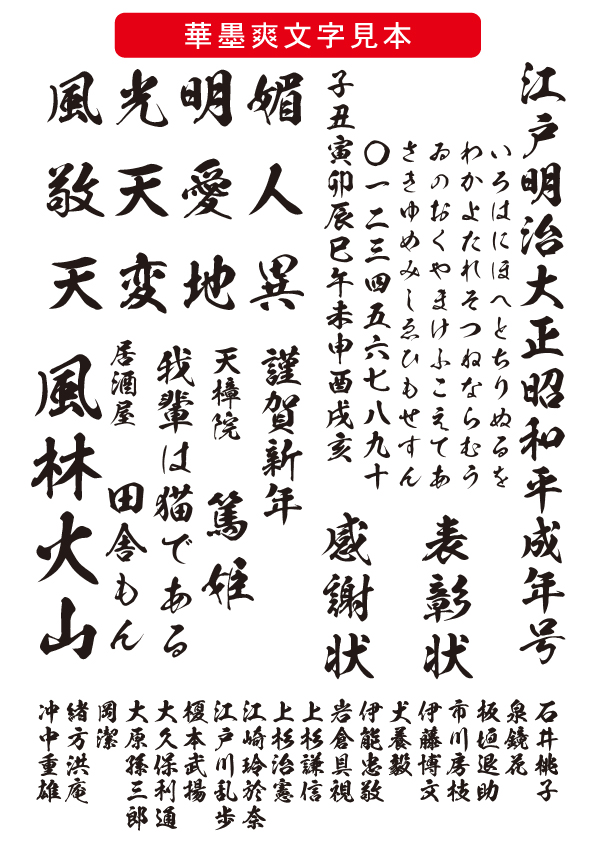 華墨爽文字見本
江戸明治大正昭和平成年号
いろはにほへとちりぬるを
わかよたれそつねならむう
ゐのおくやまけふこえてあ
さきゆめみしゑひもせすん
〇一二三四五六七八九十
子丑寅卯辰巳午未申酉戌亥
表彰状
感謝状
媚人異
明愛地
光天変
風敬天
謹賀新年
天樟院
篤姫
我輩は猫である
居酒屋
田舎もん
風林火山
石井桃子
泉鏡花
板垣退助
市川房枝
伊藤博文
犬養毅
伊能忠敬
岩倉具視
上杉謙信
上杉治憲
江崎玲於奈
江戸川乱歩
榎本武揚
大久保利通
大原孫三郎
岡潔
緒方洪庵
沖中重雄